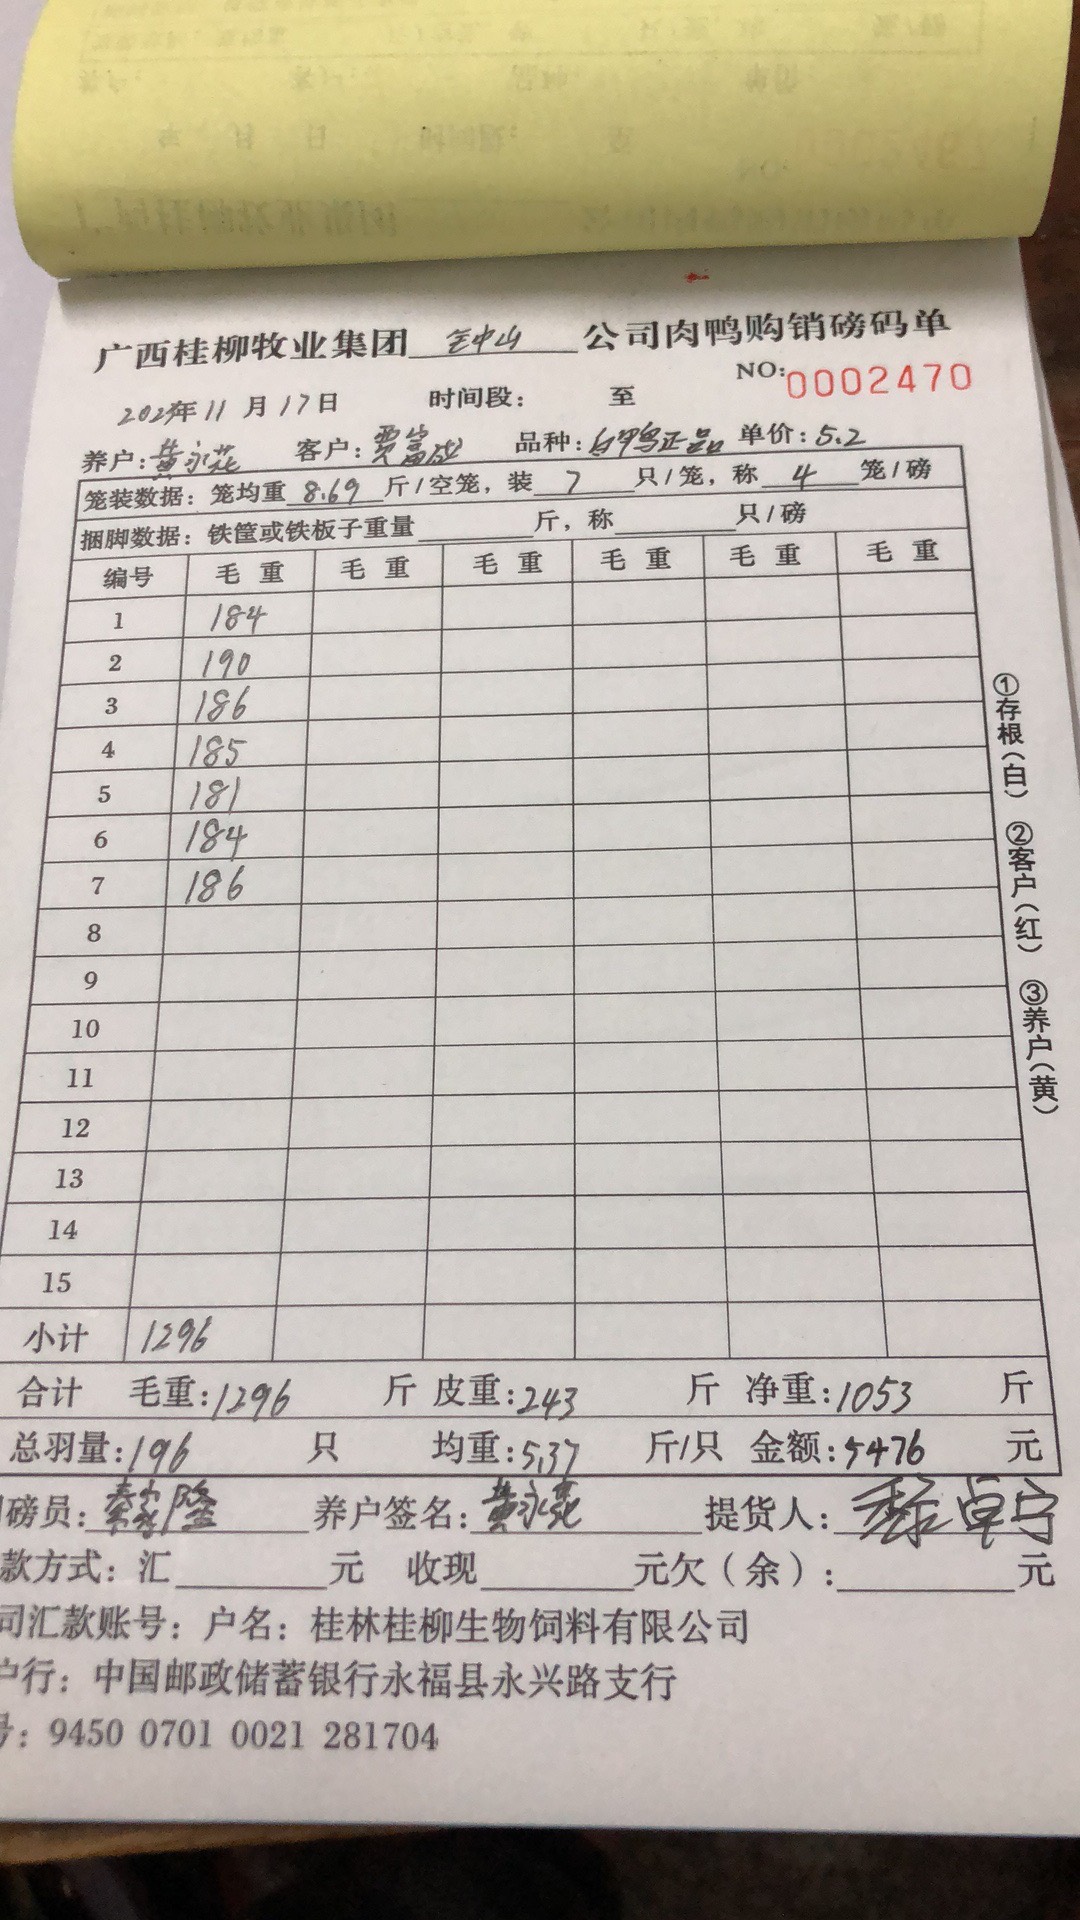 广西桂柳牧业集团 钟山 公司肉鸭购销磅码单
NO:0002470
2023年11月17日 时间段: 至
养户:黄永花 客户:贾富 品种:白鸭正品 单价:5.2
笼装数据:笼均重 8.69 斤/空笼,装 7 只/笼,称 4 笼/磅
捆脚数据:铁筐或铁板子重量 斤,称 只/磅
编号 毛重 毛重 毛重 毛重 毛重 毛重
1 184
2 190
3 186
4 185
5 181
6 184
7 186
8
9
10
11
12
13
14
15
小计 1296
合计 毛重:1296 斤 皮重:243 斤 净重:1053 斤
总羽量:196 只 均重:5.37 斤/只 金额:5476 元
磅员:秦家隆 养户签名:黄永花 提货人:卓宁
款方式:汇 元 收现 元欠(余): 元
司汇款账号:户名:桂林桂柳生物饲料有限公司
户行:中国邮政储蓄银行永福县永兴路支行
号:9450 0701 0021 281704
①存根(白) ②客户(红) ③养户(黄)